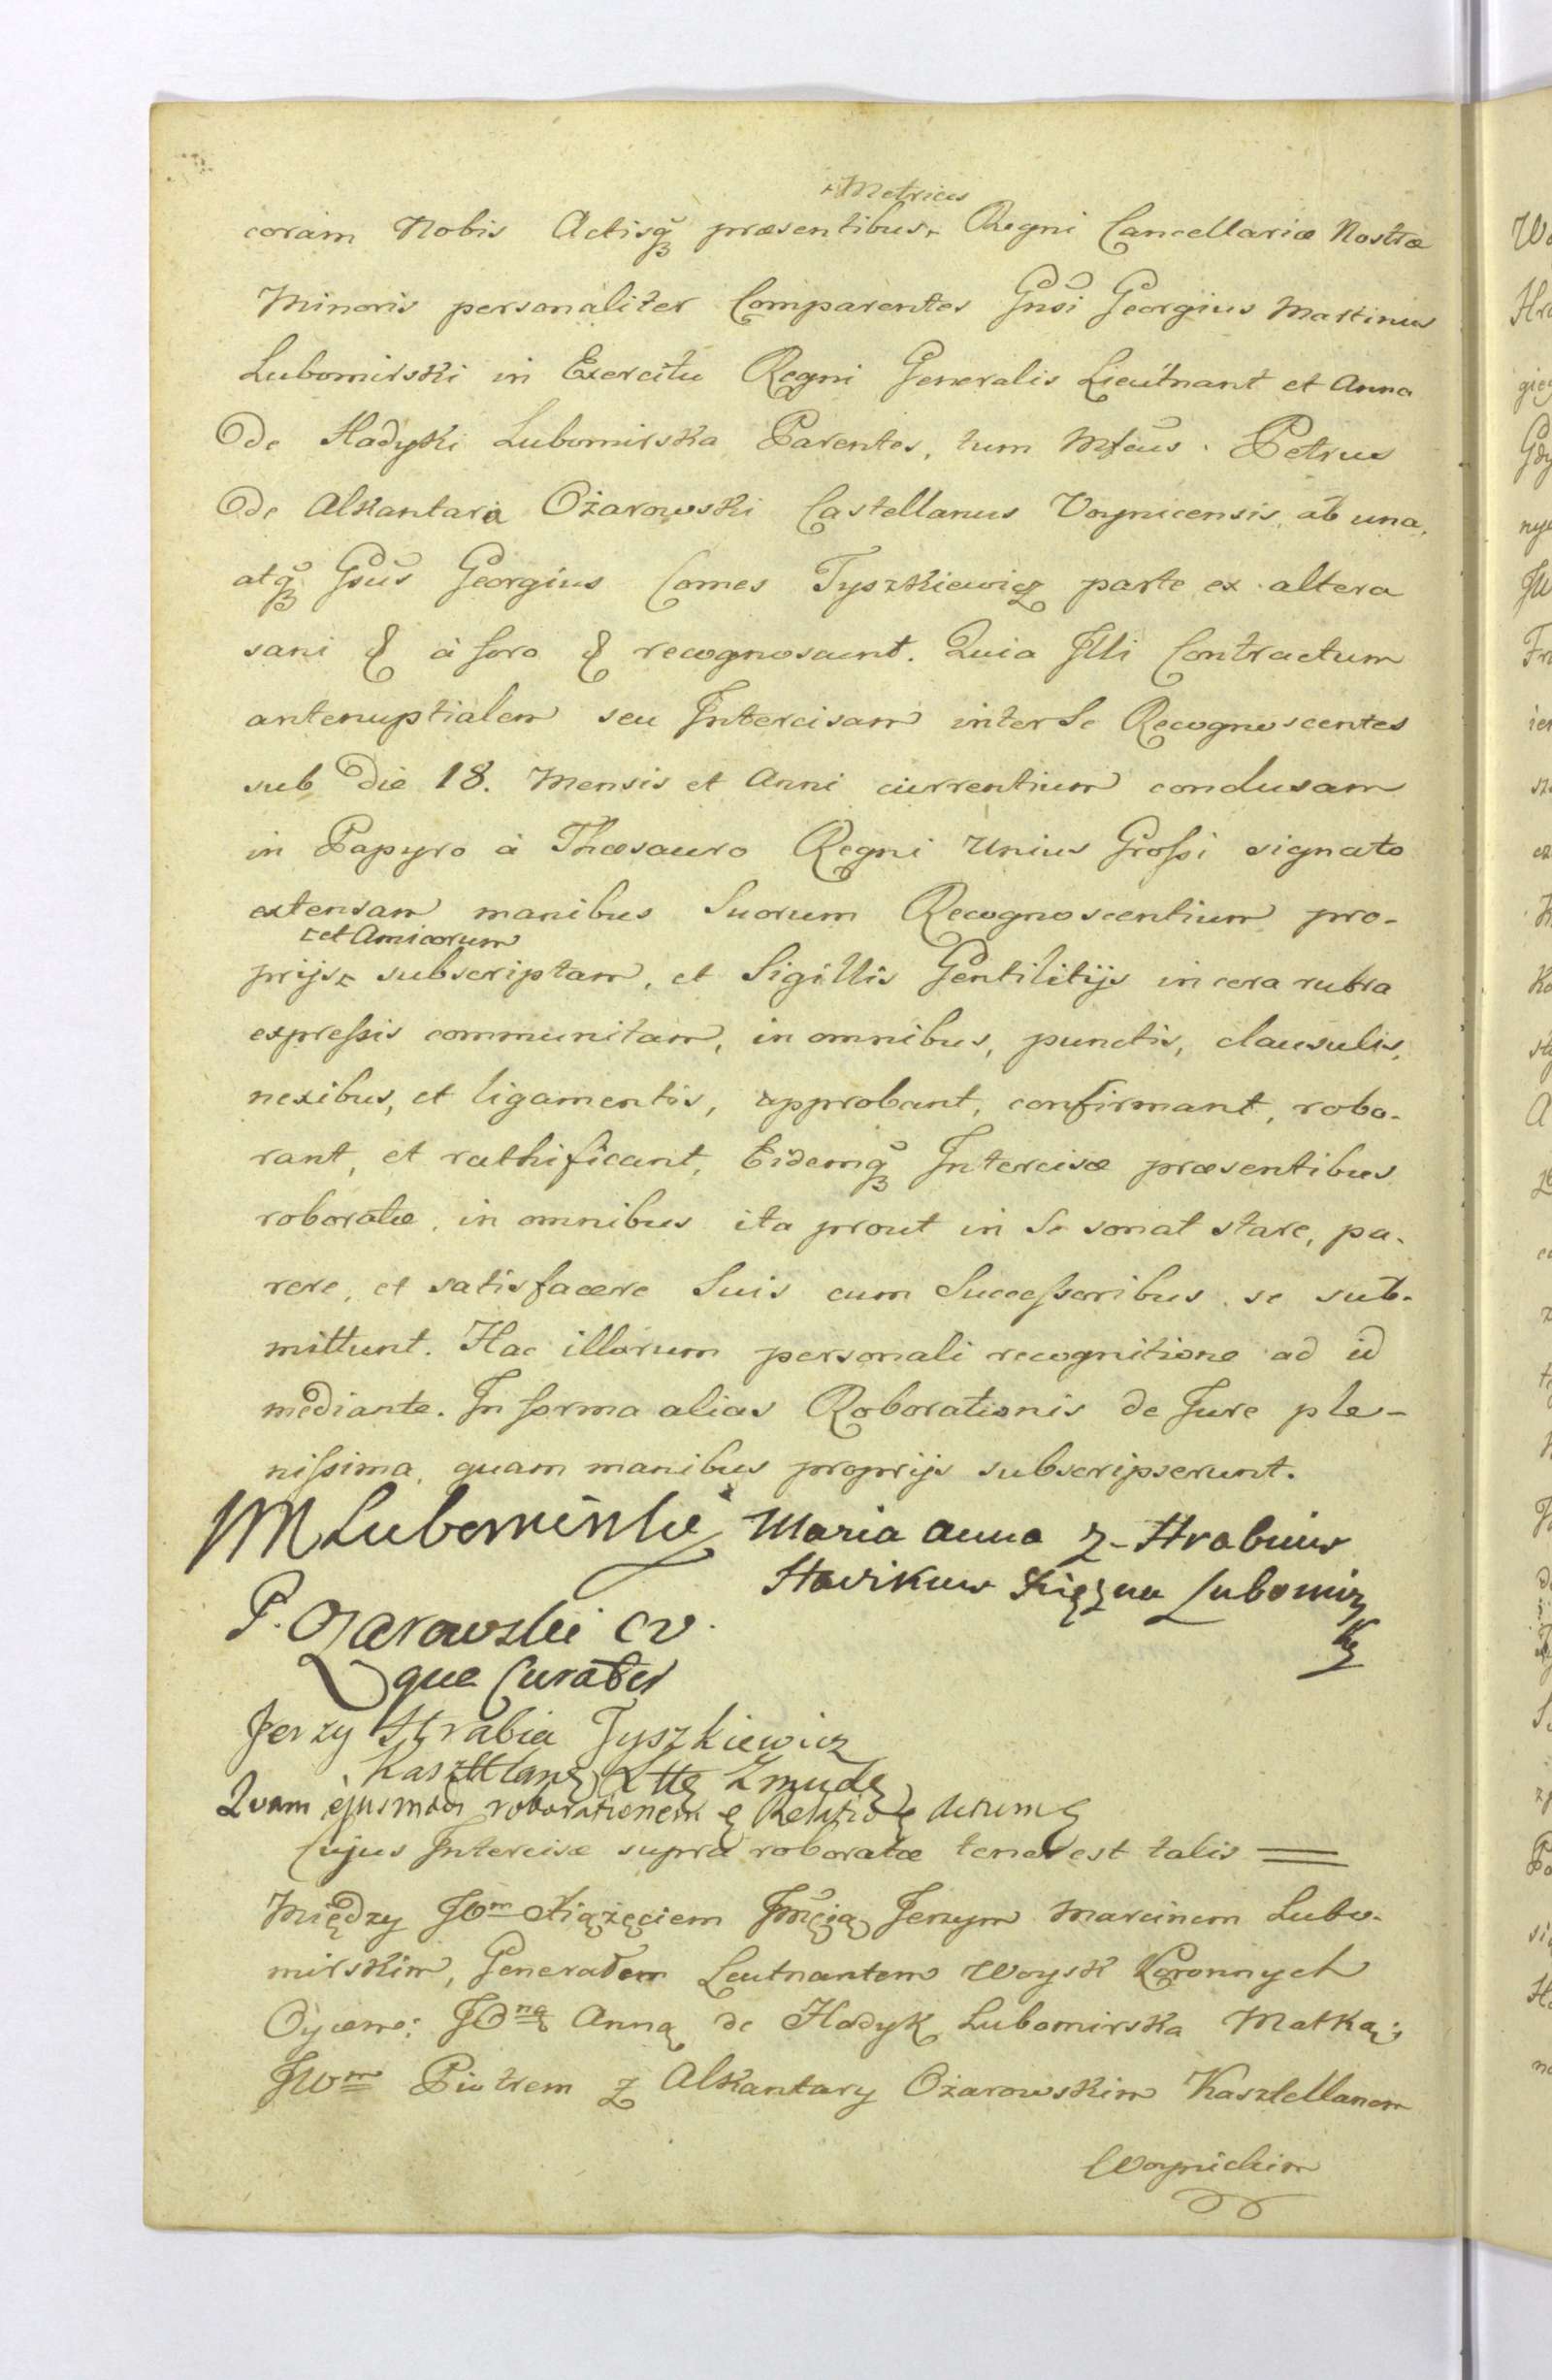 +Metrices
coram Nobis Actisq3 præsentibus+ Regni Cancellariæ Nostræ
Minoris personaliter Comparentes Gnsi Georgius Martinus
Lubomirski in Exercitu Regni Generalis Lieutnant et Anna
de Hadyki Lubomirska Parentes, tum Mfcus. Petrus
de Alkantara Ożarowski Castellanus Voynicensis, ab una,
atq3 Gsus Georgius Comes Tyszkiewicz parte ex altera
sani & à foro & recognoscunt. Quia Illi Contractum
antenuptialem seu Intercisam inter Se Recognoscentes
sub Die 18. Mensis et Anni currentium conclusam
in Papyro à Thesauro Regni Unius Grossi signato
extensam manibus Suorum Recognoscentium pro-
+et Amicorum
prijs+ subscriptam, et Sigillis Gentilitijs in cera rubra
expressis communitam, in omnibus, punctis, clausulis,
nexibus, et ligamentis, approbant, confirmant, robo-
rant, et rathificant, Eidemq3 Intercisæ præsentibus
roboratæ, in omnibus ita prout in Se sonat stare, pa-
rere, et satisfacere Suis cum Successoribus se sub-
mittunt. Hac illorum personali recognitione ad id
mediante. In forma alias Roborationis de Jure ple-
nissima, quam manibus proprijs subscripserunt.
M Lubomirski Maria Anna z Hrabiuw
Hadikuw Xiężna Lubomirz
ka
P. Ożarowski CW.
qua Curator
Jerzy Hrabia Tyszkiewicz
Kasztlan
Quam ejusmodi roborationem
Cujus Intercisæ supra roboratæ tenor est talis =
Między JOm Xiążęciem Jmcią Jerzym Marcinem Lubo-
mirskim, Generałem Leutnantem Woysk Koronnych
Oycem; JOną Anną de Hadyk Lubomirska Matką;
JWm Piotrem z Alkantary Ożarowskim Kasztellanem
Woynickim